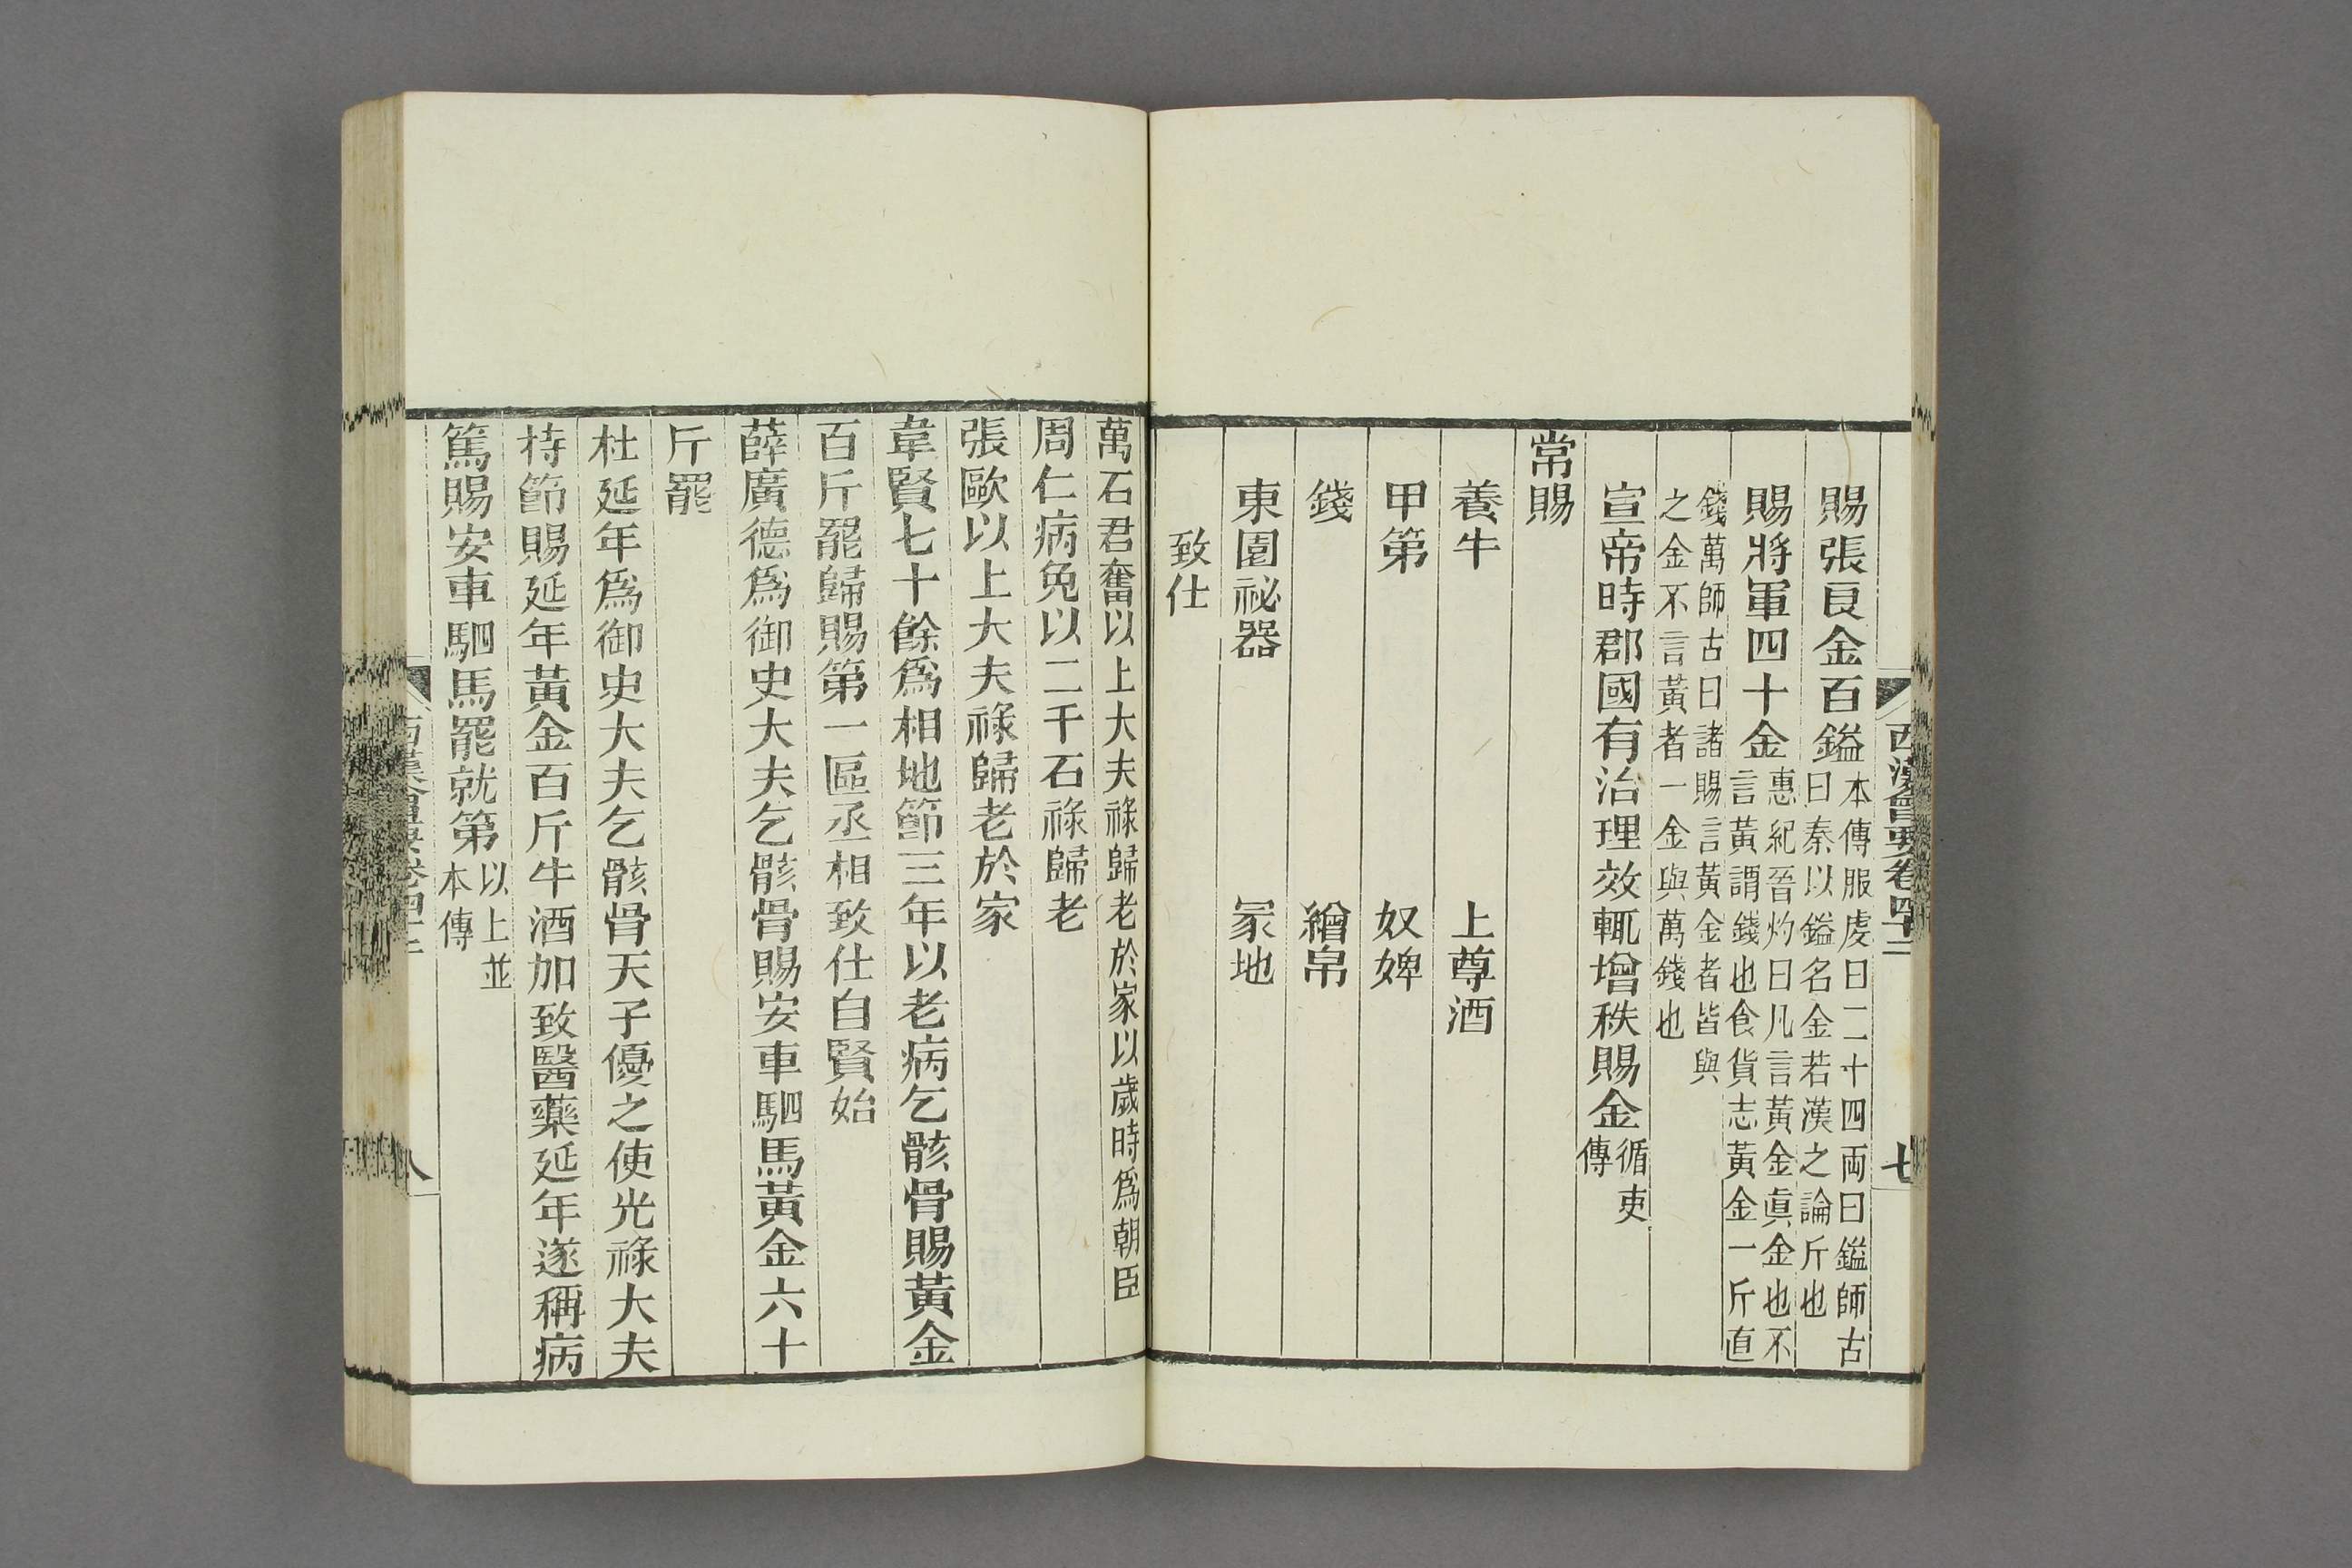 西漢會要卷四十二
七
賜張良金百鎰本傳服虔曰二十四兩曰鎰師古
曰秦以鎰名金若漢之論斤也
賜將軍四十金惠紀晉灼曰凡言黃金真金也不
言黃謂錢也食貨志黃金一斤直
錢萬師古曰諸賜言黃金者皆與
之金不言黃者一金與萬錢也
宣帝時郡國有治理效輒增秩賜金循吏
傳
常賜
養牛 上尊酒
甲第 奴婢
錢 繒帛
東園祕器 冢地
致仕
萬石君奮以上大夫祿歸老於家以歲時爲朝臣
周仁病免以二千石祿歸老
張歐以上大夫祿歸老於家
韋賢七十餘爲相地節三年以老病乞骸骨賜黃金
百斤罷歸賜第一區丞相致仕自賢始
薛廣德爲御史大夫乞骸骨賜安車駟馬黃金六十
斤罷
杜延年爲御史大夫乞骸骨天子優之使光祿大夫
持節賜延年黃金百斤牛酒加致醫藥延年遂稱病
篤賜安車駟馬罷就第以上並
本傳
西漢會要卷四十二
八